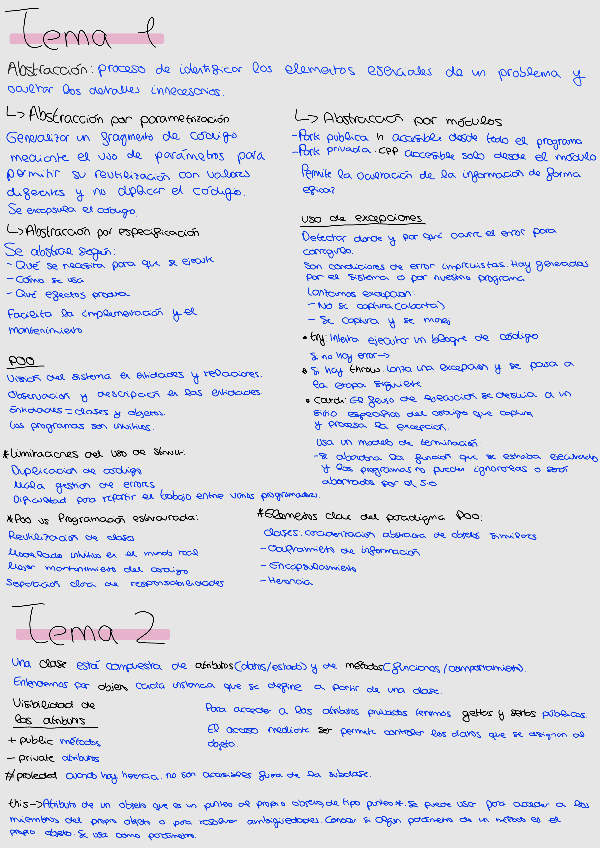 Tema 1
Abstracción: proceso de identificar los elementos esenciales de un problema y
ocultar los detalles innecesarios.
↳ Abstracción por parametrización
Generalizar un fragmento de código
mediante el uso de parámetros para
permitir su reutilización con valores
diferentes y no duplicar el código.
Se encapsula el código.
↳ Abstracción por especificación
Se abstrae según:
- Qué se necesita para que se ejecute
- Cómo se usa
- Qué efectos produce
Facilita la implementación y el
mantenimiento
POO
Visión del sistema en entidades y relaciones.
Observación y descripción de las entidades.
Entidades = clases y objetos.
Los programas son intuitivos.
*Limitaciones del uso de struct:
Duplicación de código
Mala gestión de errores
Dificultad para repartir el trabajo entre varios programadores.
*Poo vs Programación estructurada:
Reutilización de clases
Modelado intuitivo en el mundo real
Mejor mantenimiento del código
Separación clara de responsabilidades
↳ Abstracción por módulos
- Parte pública .h accesible desde todo el programa
- Parte privada .cpp accesible solo desde el módulo
Permite la ocultación de la información de forma
eficaz
uso de excepciones
Detectar donde y por qué ocurre el error para
corregirlo.
Son condiciones de error imprevistas. Hay generadas
por el sistema o por nuestro programa
Lanzamos excepcion:
- No se captura (aborta)
- Se captura y se maneja
• try: intenta ejecutar un bloque de código
Si no hay error →
• Si hay throw: lanza una excepcion y se pasa a
la etapa siguiente
• catch: El flujo de ejecución se desvía a un
sitio específico del código que captura
y procesa la excepción.
Usa un modelo de terminación
- Se abandona la función que se estaba ejecutando
y los programas no pueden ignorarlas o serán
abortados por el S.O
*Elementos clave del paradigma POO:
clases: caracterización abstracta de objetos similares
- Ocultamiento de información
- Encapsulamiento
- Herencia
Tema 2
Una clase está compuesta de atributos (datos/estado) y de métodos (funciones/comportamiento).
Entendemos por objeto cada instancia que se define a partir de una clase.
Visibilidad de
los atributos
+ public métodos
- private atributos
# protected cuando hay herencia. no son accesibles fuera de la subclase.
Para acceder a los atributos privados tenemos getters y setters públicos.
El acceso mediante set permite controlar los datos que se asignan al
objeto.
this → Atributo de un objeto que es un puntero al propio objeto, de tipo puntero*. Se puede usar para acceder a los
miembros del propio objeto o para resolver ambigüedades. Conocer si algún parámetro de un método es el
propio objeto. Se usa como parámetro.